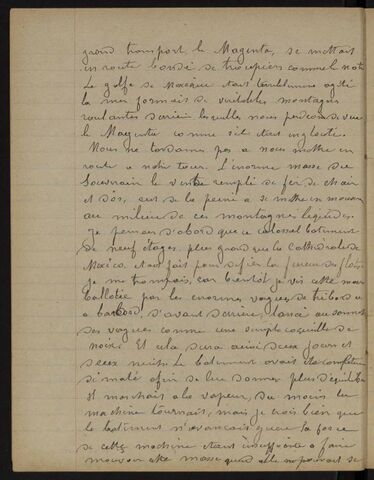 grand transport le Magenta, se mettait
en route bondé de troupiers comme le notre
Le golfe de Mexique était terriblement agité
la mer formait de véritables montagnes
roulantes derrière lesquelles nous perdions de vue
le Magenta comme s'il était englouti.
Nous ne tardames pas a nous mettre en
route a notre tour. L'énorme masse du
Souverain le ventre remplie de fer de chair
et d'os, eut de la peine a se mettre en mouvem
au milieu de ces montagnes liquides.
Je pensais d'abord que ce colossal batiment
de neuf étages, plus grand que la Cathédrale de
Mexico, était fait pour défier la fureur des flots
Je me trompais, car bientot je vis cette masse
ballotée par les énormes vagues de tribord a
a babord, d'avant d'arrière, lancé au sommet
des vagues comme une simple coquille de
noix. Et cela dura ainsi deux jours et
deux nuits. Le batiment avait été complètement
dématé afin de lui donner plus d'équilibre
il marchait a la vapeur, du moins la
machine tournait, mais je crois bien que
le batiment n'avancait guère la force
de cette machine étant insuffisante a faire
mouvoir cette masse quand elle ne pouvait se